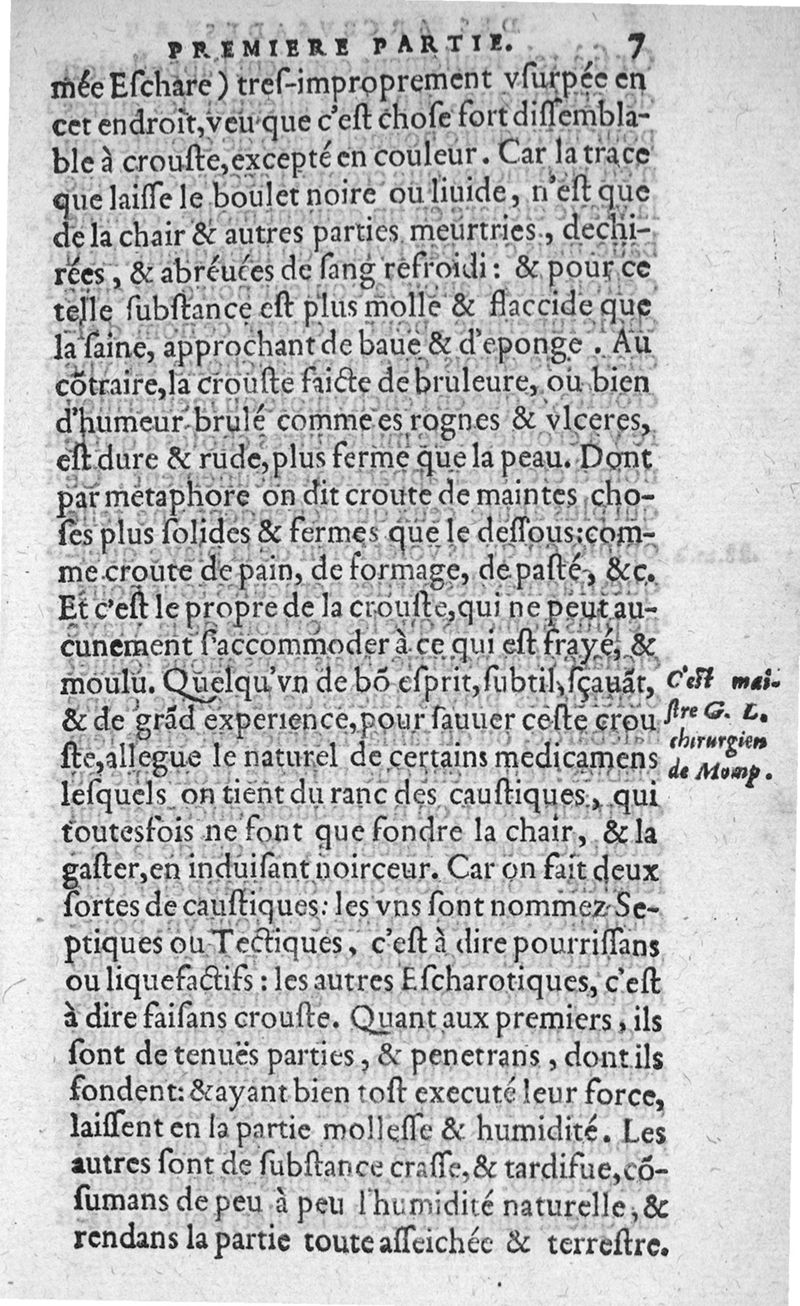 PREMIERE PARTIE. 7
mée Eſchare) treſ-improprement vſurpée en
cet endroit, veu que c'eſt choſe fort diſſembla-
ble à crouſte, excepté en couleur. Car la trace
que laiſſe le boulet noire ou liuide, n'eſt que
de la chair & autres parties meurtries, dechi-
rées, & abréuées de ſang refroidi: & pour ce
telle ſubſtance eſt plus molle & flaccide que
la ſaine, approchant de baue & d'eponge. Au
cõtraire, la crouſte faicte de bruleure, ou bien
d'humeur brulé comme es rognes & vlceres,
eſt dure & rude, plus ferme que la peau. Dont
par metaphore on dit croute de maintes cho-
ſes plus ſolides & fermes que le deſſous: com-
me croute de pain, de formage, de paſté, &c.
Et c'eſt le propre de la crouſte, qui ne peut au-
cunement ſ'accommoder à ce qui eſt frayé, &
moulu. Quelqu'vn de bõ eſprit, ſubtil, ſçauãt,
& de grãd experience, pour ſauuer ceſte crou
ſte, allegue le naturel de certains medicamens
leſquels on tient du ranc des cauſtiques, qui
toutesfois ne font que fondre la chair, & la
gaſter, en induiſant noirceur. Car on fait deux
ſortes de cauſtiques: les vns ſont nommez Se-
ptiques ou Tectiques, c'eſt à dire pourriſſans
ou liquefactifs: les autres Eſcharotiques, c'eſt
à dire faiſans crouſte. Quant aux premiers, ils
ſont de tenuës parties, & penetrans, dont ils
fondent: & ayant bien toſt executé leur force,
laiſſent en la partie molleſſe & humidité. Les
autres ſont de ſubſtance craſſe, & tardifue, cõ-
ſumans de peu à peu l'humidité naturelle, &
rendans la partie toute aſſeichée & terreſtre.
C'eſt mai-
ſtre G. L.
chirurgien
de Momp.